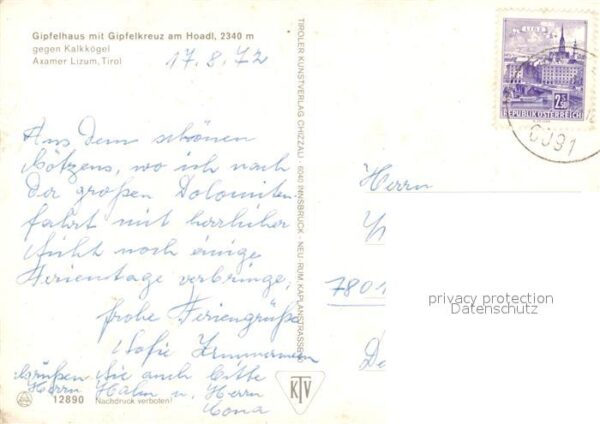 Gipfelhaus mit Gipfelkreuz am Hoadl, 2340 m
gegen Kalkkögel
Axamer Lizum, Tirol
17.8.72
Aus dem schönen
Götzens, wo ich nach
der großen Dolomiten
fahrt mit herrlicher
Sicht noch einige
Ferientage verbringe,
frohe Feriengrüße
Sofie Zimmermann
Grüßen Sie auch bitte
Herrn Hahn u. Herrn
12890 Nachdruck verboten!
TIROLER KUNSTVERLAG CHIZZALI · 6040 INNSBRUCK - NEU RUM, KAPLANSTRASSE
KTV
LINZ
2.50
REPUBLIK ÖSTERREICH
6091
Herrn
7801
De
privacy protection
Datenschutz